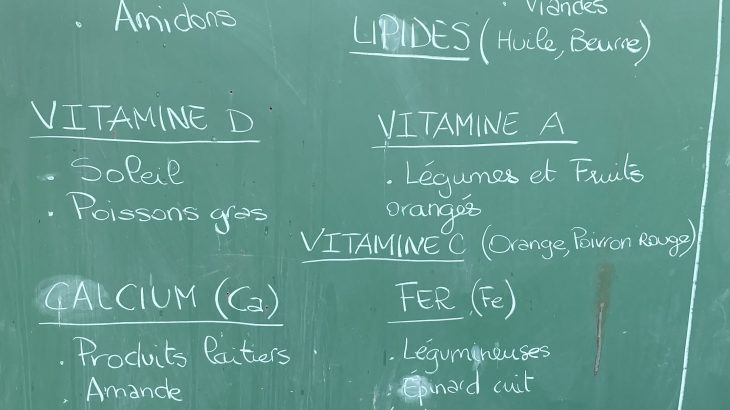 . Amidons
. Viandes
LIPIDES (Huile, Beurre)
VITAMINE D
. Soleil
. Poissons gras
VITAMINE A
. Légumes et Fruits
orangés
VITAMINE C (Orange, Poivron Rouge)
CALCIUM (Ca)
. Produits laitiers
Amande
FER (Fe)
. Légumineuses
. Épinard cuit